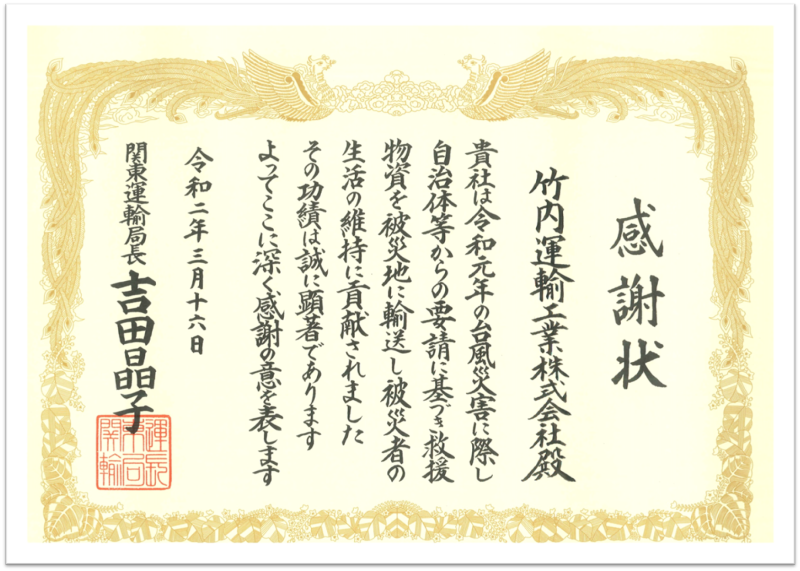 感謝状
竹内運輸工業株式会社殿
貴社は令和元年の台風災害に際し
自治体等からの要請に基づき救援
物資を被災地に輸送し被災者の
生活の維持に貢献されました
その功績は誠に顕著であります
よってここに深く感謝の意を表します
令和二年三月十六日
関東運輸局長 吉田晶子
運長
東局
関輸